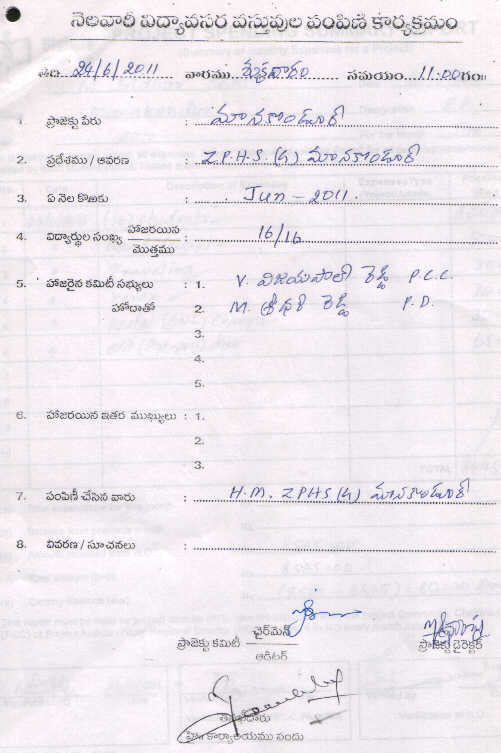 నెలవారీ విద్యావసర వస్తువుల పంపిణి కార్యక్రమం
తేది. 24/6/2011 వారము శుక్రవారం సమయం. 11:00గం॥
1. ప్రాజెక్టు పేరు : మానకొండూర్
2. ప్రదేశము / ఆవరణ : Z.P.H.S. (G) మానకొండూర్
3. ఏ నెల కొఱకు : Jun - 2011.
4. విద్యార్థుల సంఖ్య హాజరయిన / మొత్తము : 16/16
5. హాజరైన కమిటీ సభ్యులు : 1. V. విజయపాల్ రెడ్డి P.C.C.
హోదాతో 2. M. శ్రీధర్ రెడ్డి P.D.
3.
4.
5.
6. హాజరయిన ఇతర ముఖ్యులు : 1.
2.
3.
7. పంపిణీ చేసిన వారు : H.M. ZPHS (G) మానకొండూర్
8. వివరణ / సూచనలు :
ప్రాజెక్టు కమిటీ ఛైర్‌మెన్ / ఆడిటర్ ప్రాజెక్టు డైరెక్టర్
కార్యాలయము నందు